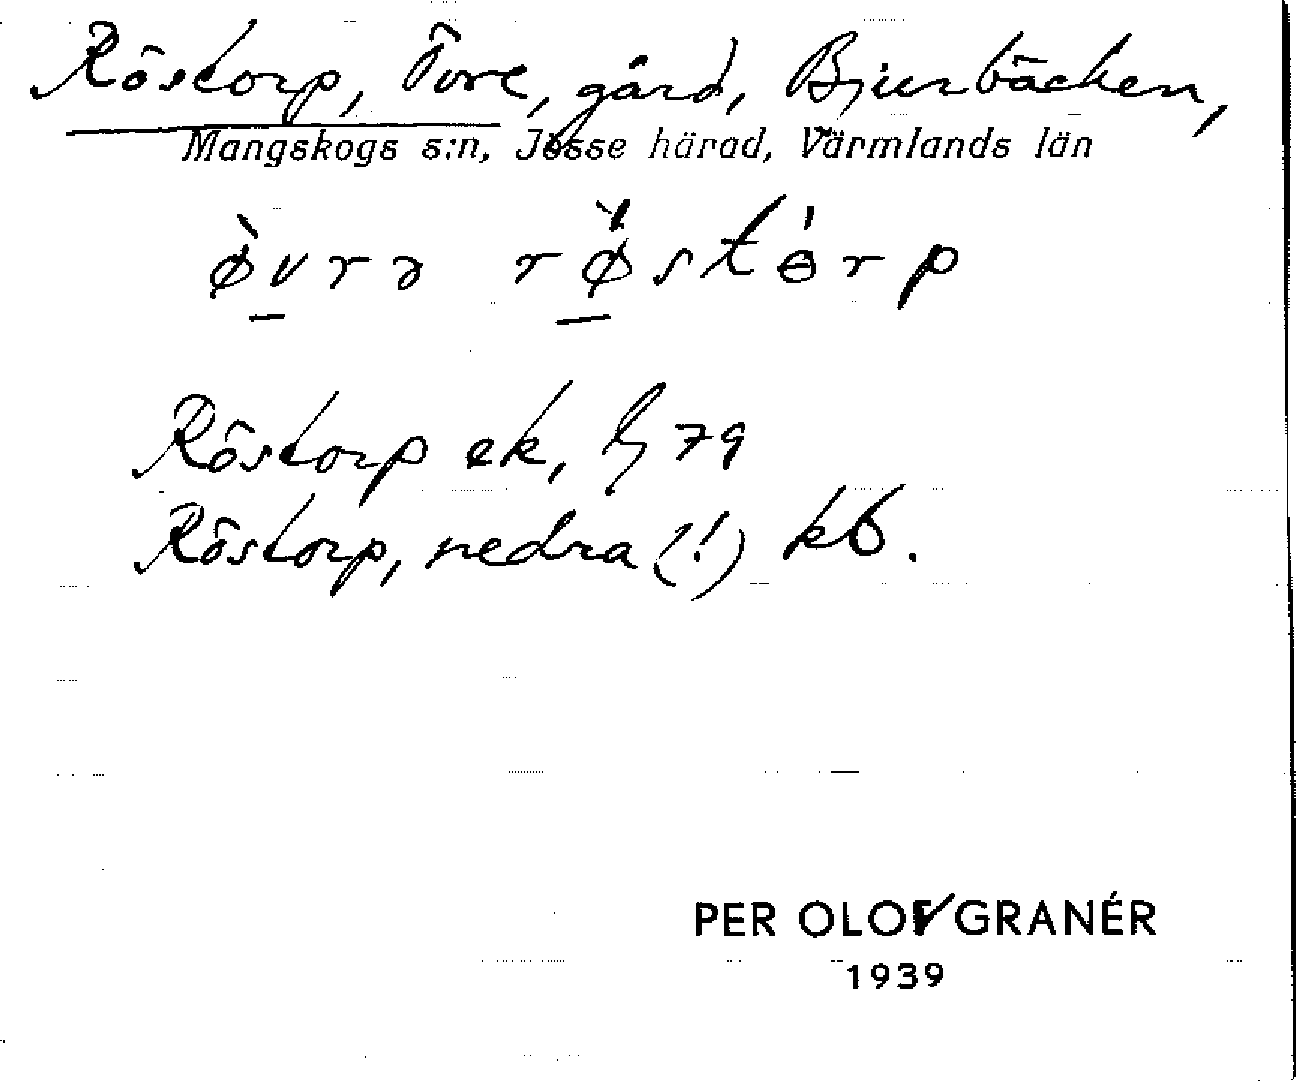 Röstorp, Övre, gård, Bjurbäcken,
Mangskogs s:n, Jösse härad, Värmlands län
ø̀vrə rø̀stɵ́rp
Röstorp ek, 79
Röstorp, nedra (!) kb.
PER OLOV GRANÉR
1939